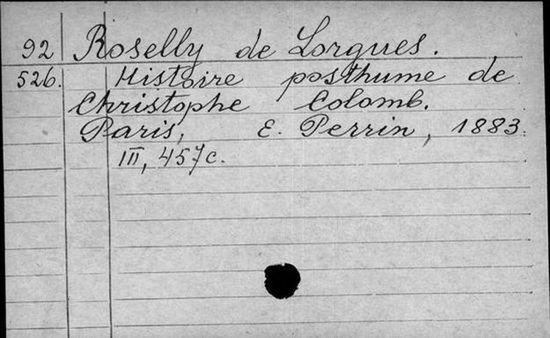 92 Roselly de Lorgues.
526. Histoire posthume de
Christophe Colomb.
Paris, E. Perrin, 1883.
III, 457c.